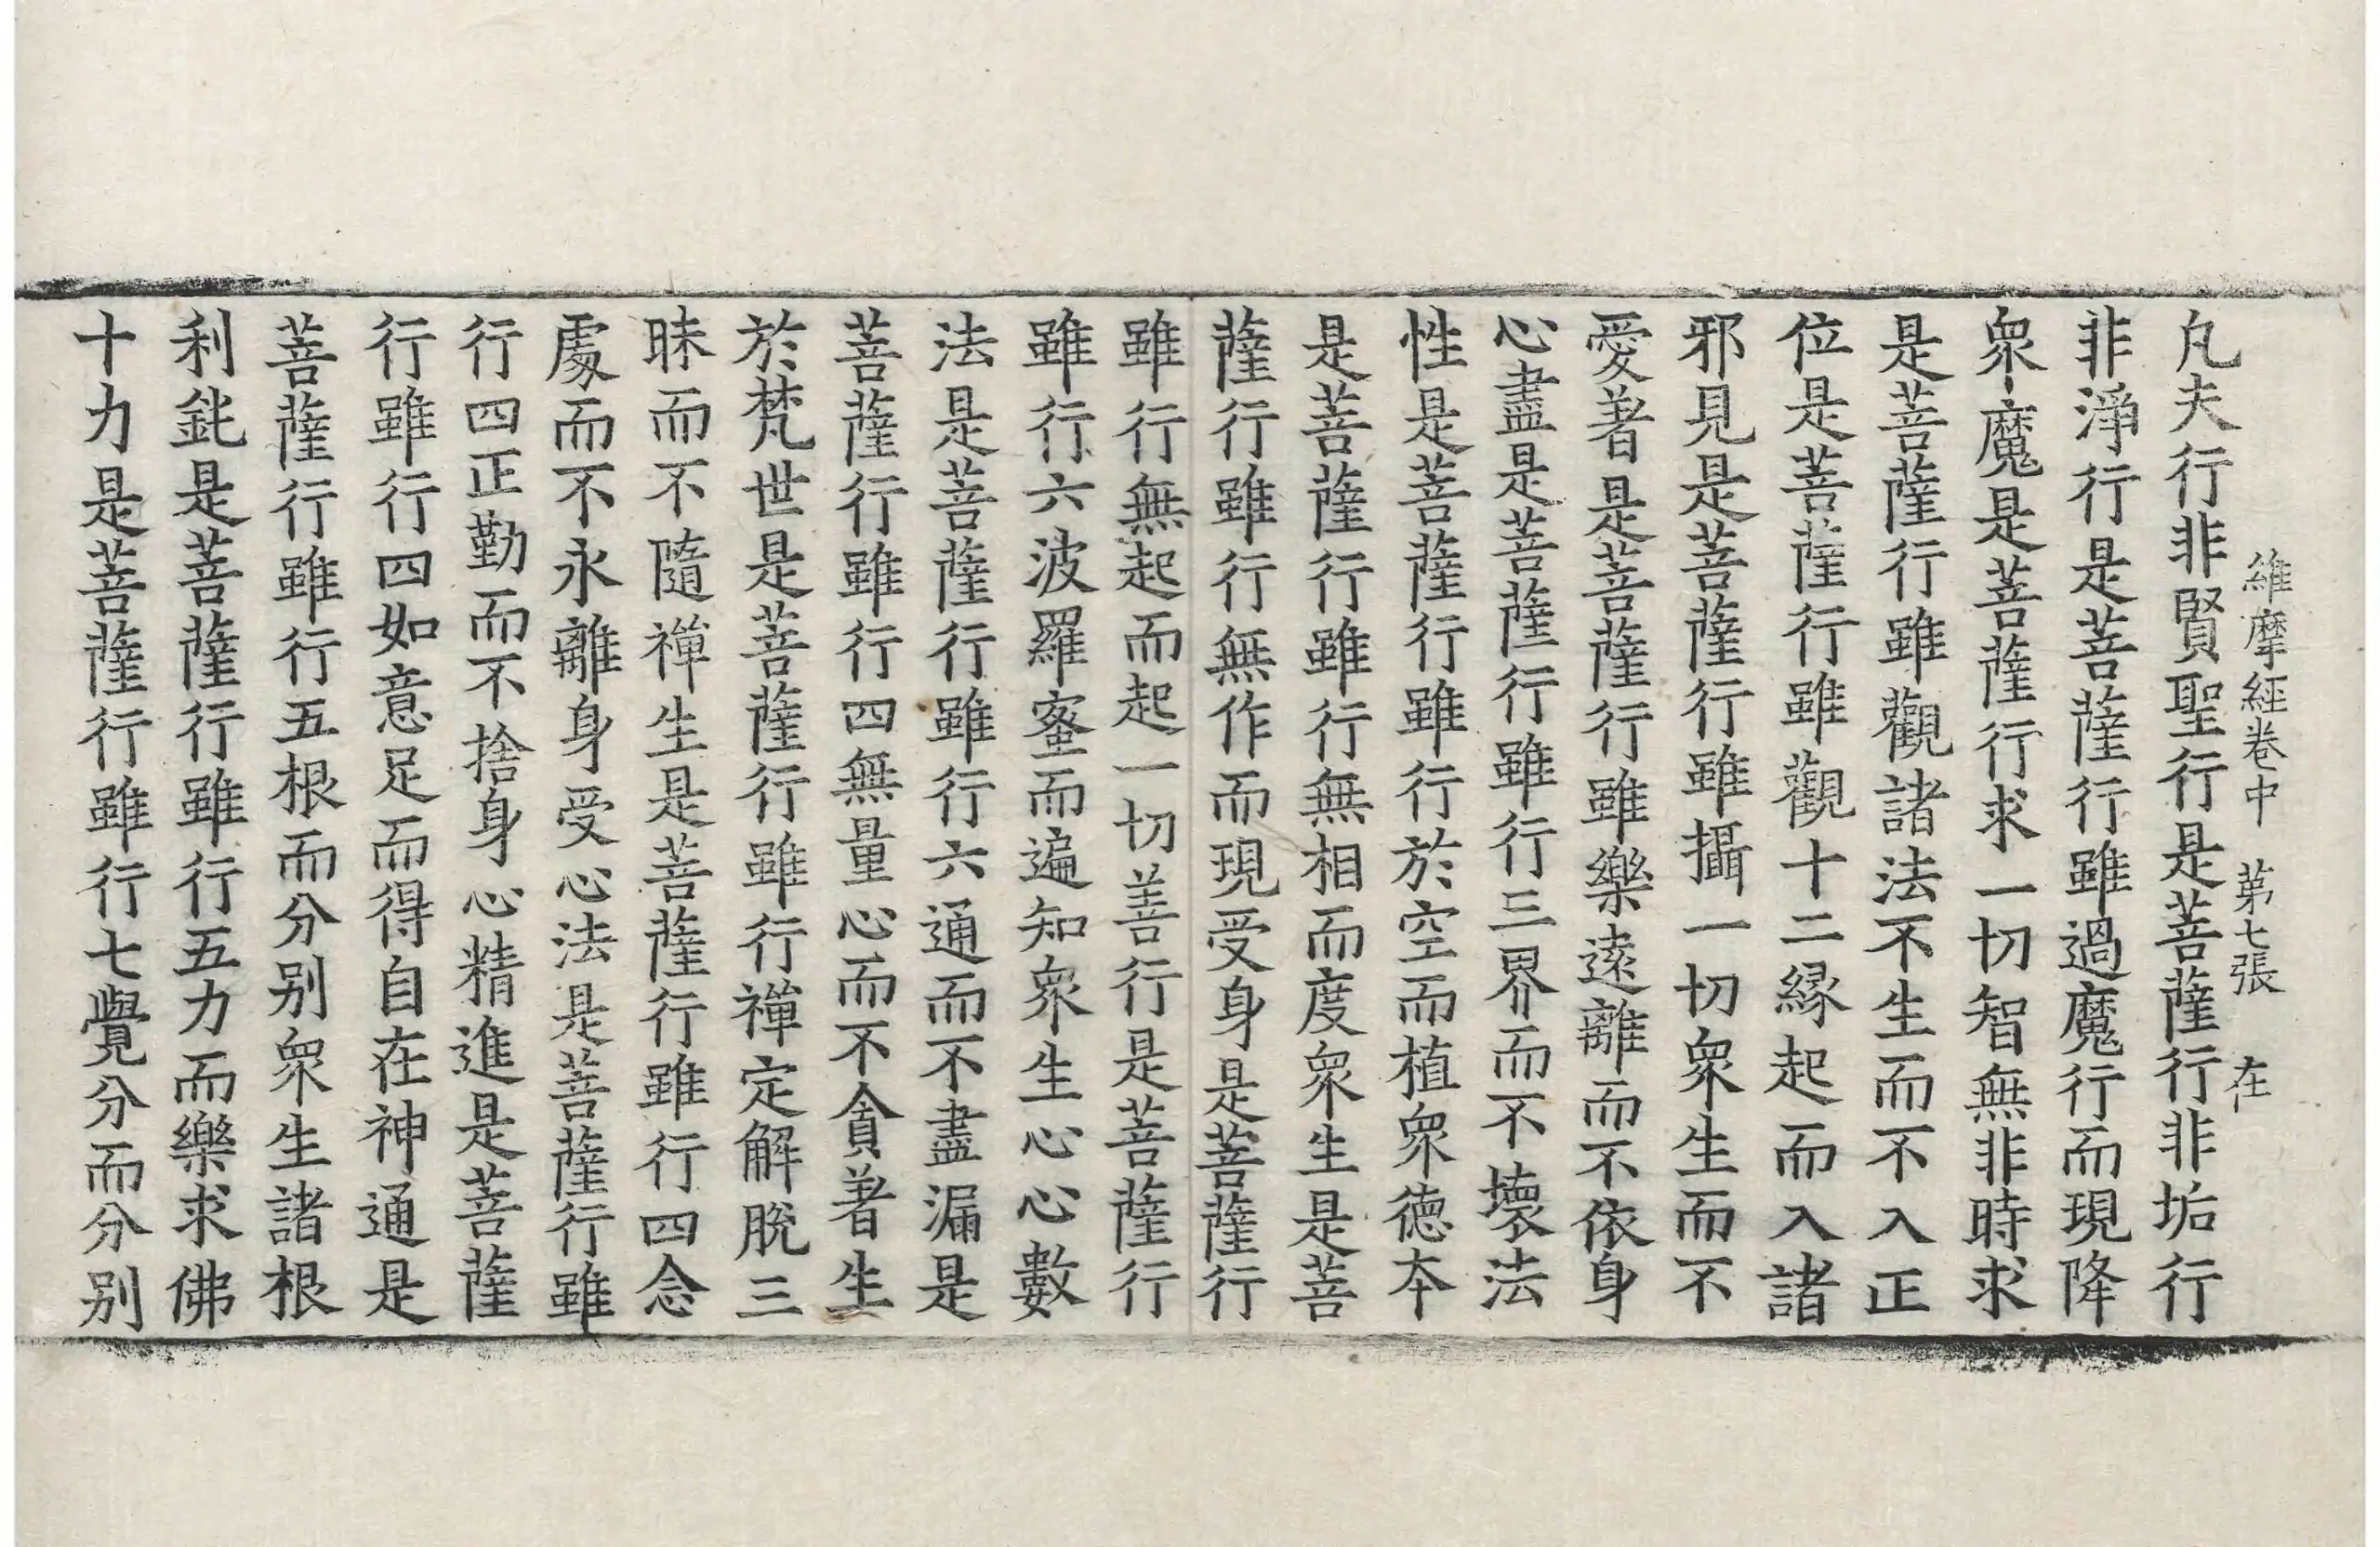 維摩經卷中 第七張 在
凡夫行非賢聖行是菩薩行非垢行
非淨行是菩薩行雖過魔行而現降
衆魔是菩薩行求一切智無非時求
是菩薩行雖觀諸法不生而不入正
位是菩薩行雖觀十二緣起而入諸
邪見是菩薩行雖攝一切衆生而不
愛著是菩薩行雖樂遠離而不依身
心盡是菩薩行雖行三界而不壞法
性是菩薩行雖行於空而植衆德本
是菩薩行雖行無相而度衆生是菩
薩行雖行無作而現受身是菩薩行
雖行無起而起一切善行是菩薩行
雖行六波羅蜜而遍知衆生心心數
法是菩薩行雖行六通而不盡漏是
菩薩行雖行四無量心而不貪著生
於梵世是菩薩行雖行禪定解脫三
昧而不隨禪生是菩薩行雖行四念
處而不永離身受心法是菩薩行雖
行四正勤而不捨身心精進是菩薩
行雖行四如意足而得自在神通是
菩薩行雖行五根而分別衆生諸根
利鈍是菩薩行雖行五力而樂求佛
十力是菩薩行雖行七覺分而分別